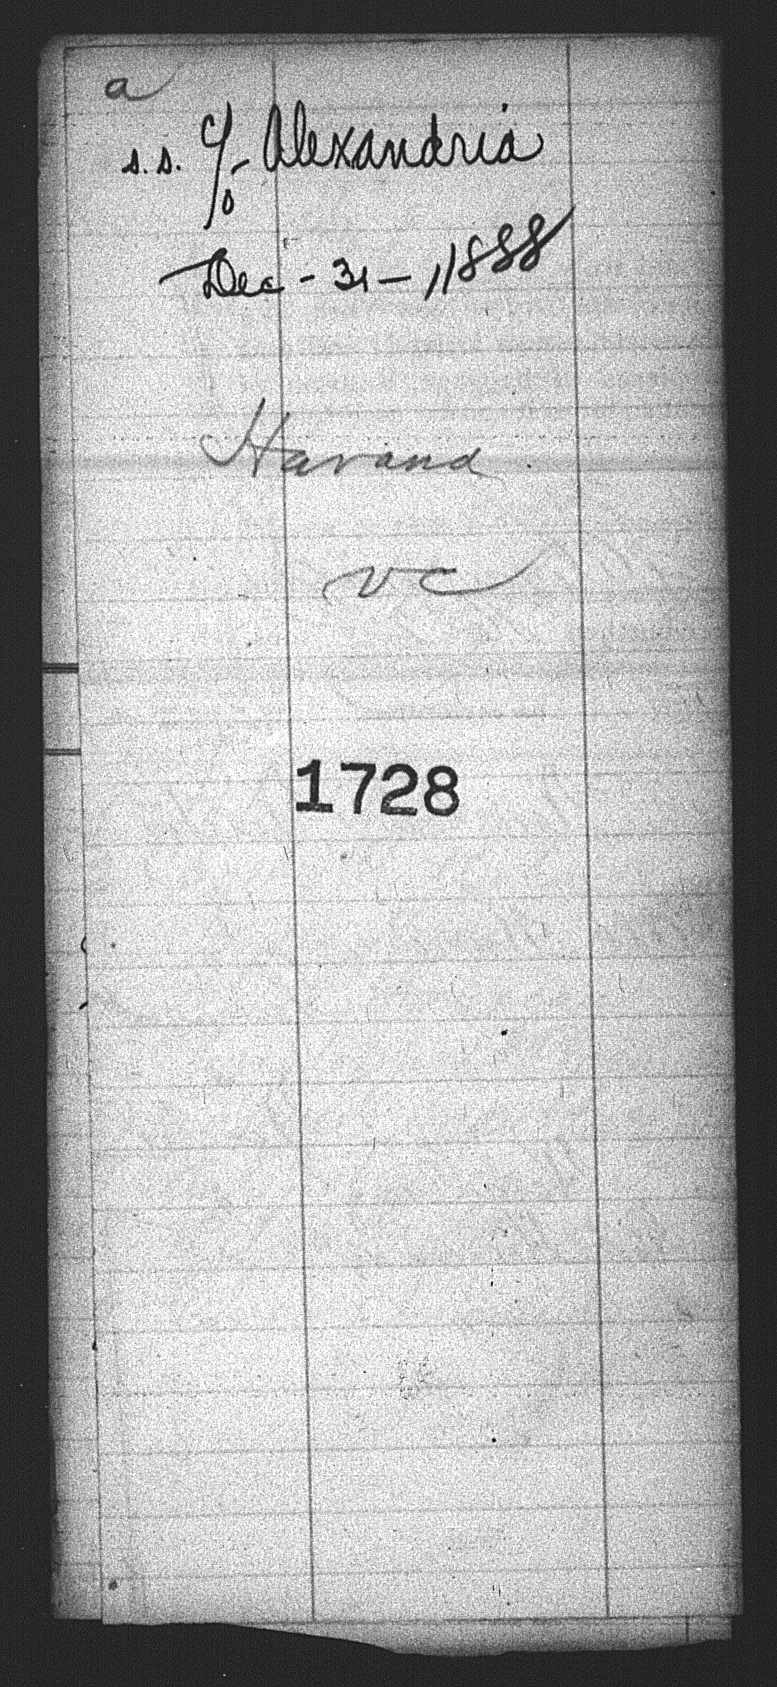 a
s.s. C/o Alexandria
Dec - 31 - 1888
Havana
VC
1728